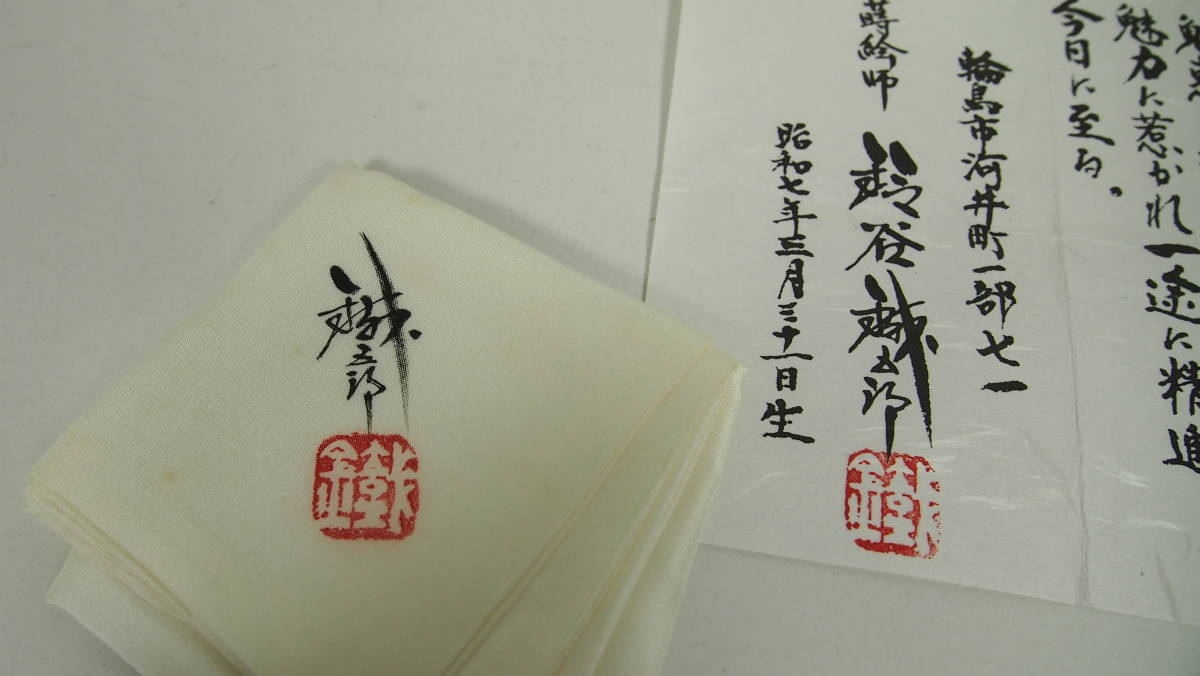 魅力に惹かれ一途に精進
今日に至る。
輪島市河井町一部七一
蒔絵師
鈴谷鐵五郎
鐵
昭和七年三月三十一日生
鐵五郎
鐵